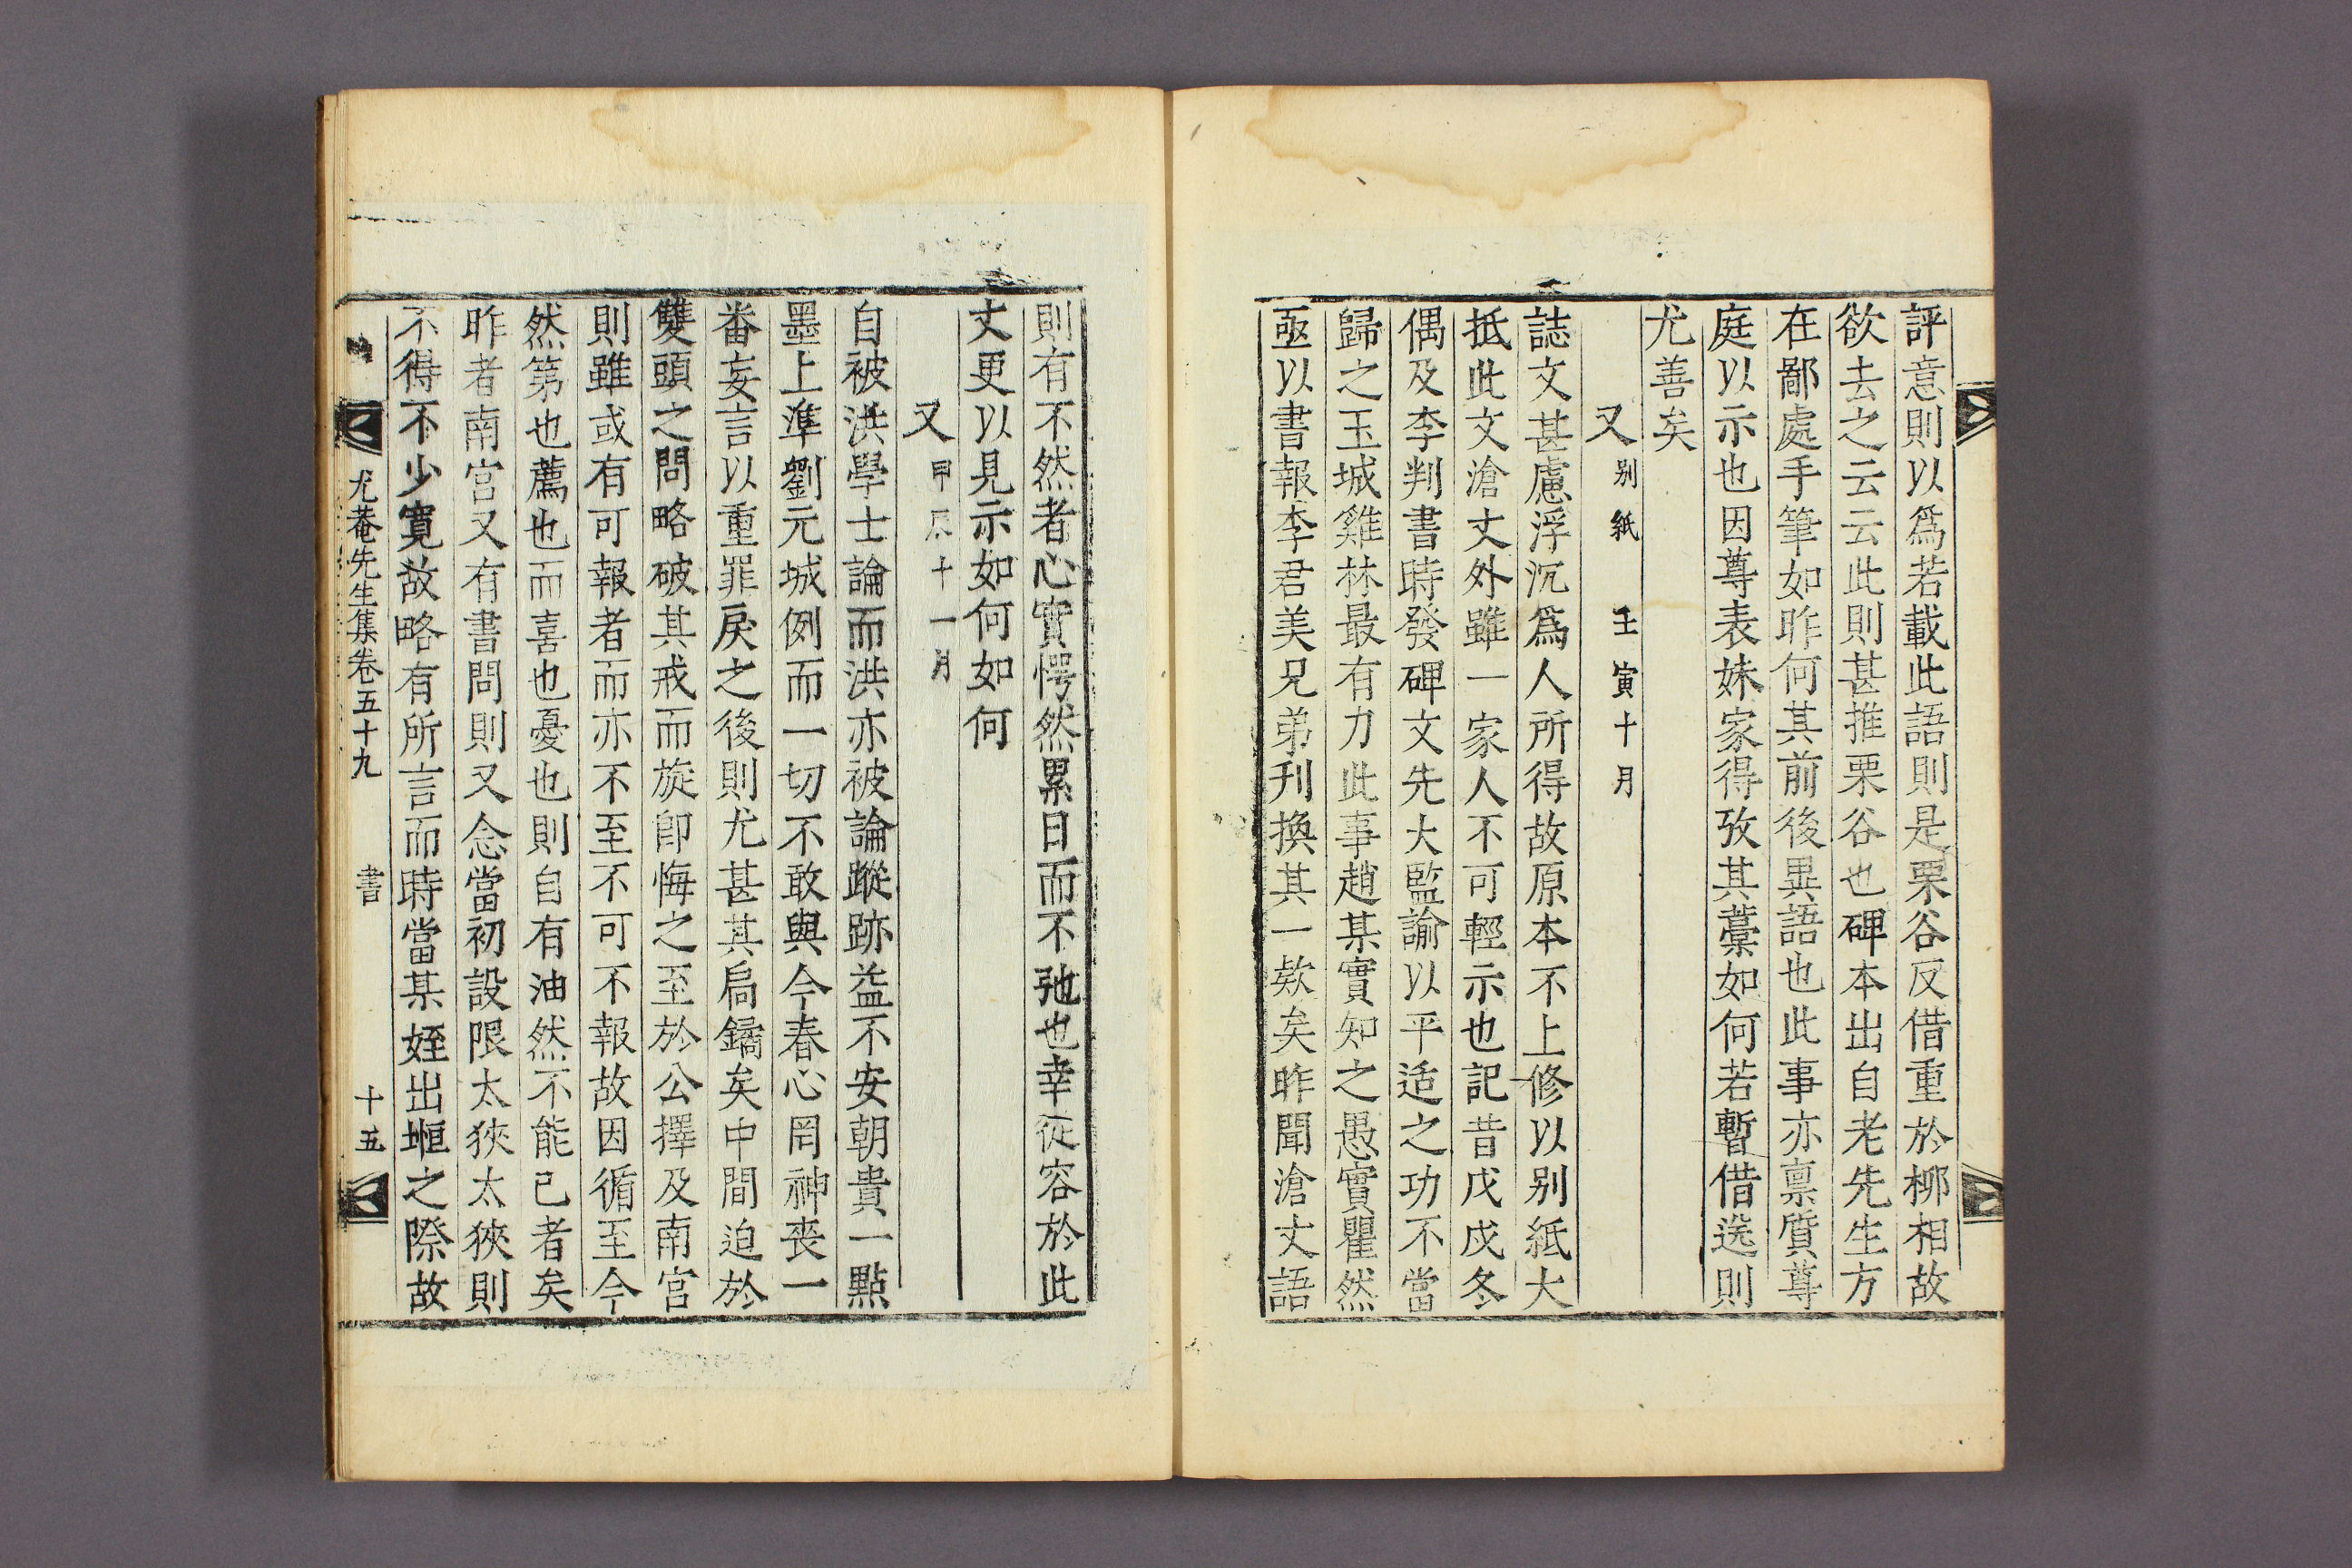 評意則以爲若載此語則是栗谷反借重於柳相故
欲去之云云此則甚推栗谷也碑本出自老先生方
在鄙處手筆如昨何其前後異語也此事亦禀質尊
庭以示也因尊表妹家得攷其藁如何若暫借送則
尤善矣
又 别紙 壬寅十月
誌文甚慮浮沉爲人所得故原本不上修以别紙大
抵此文滄丈外雖一家人不可輕示也記昔戊戌冬
偶及李判書時發碑文先大監諭以平适之功不當
歸之玉城雞林最有力此事趙某實知之愚實瞿然
亟以書報李君美兄弟刊換其一欵矣昨聞滄丈語
則有不然者心實愕然累日而不弛也幸從容於此
丈更以見示如何如何
又 甲辰十一月
自被洪學士論而洪亦被論蹤跡益不安朝貴一點
墨上準劉元城例而一切不敢與今春心罔神喪一
番妄言以重罪戾之後則尤甚其扃鐍矣中間迫於
雙頭之問略破其戒而旋卽悔之至於公擇及南宮
則雖或有可報者而亦不至不可不報故因循至今
然第也薦也而喜也憂也則自有油然不能已者矣
昨者南宮又有書問則又念當初設限太狹太狹則
不得不少寬故略有所言而時當某姪出垣之際故
尤菴先生集卷五十九 書 十五